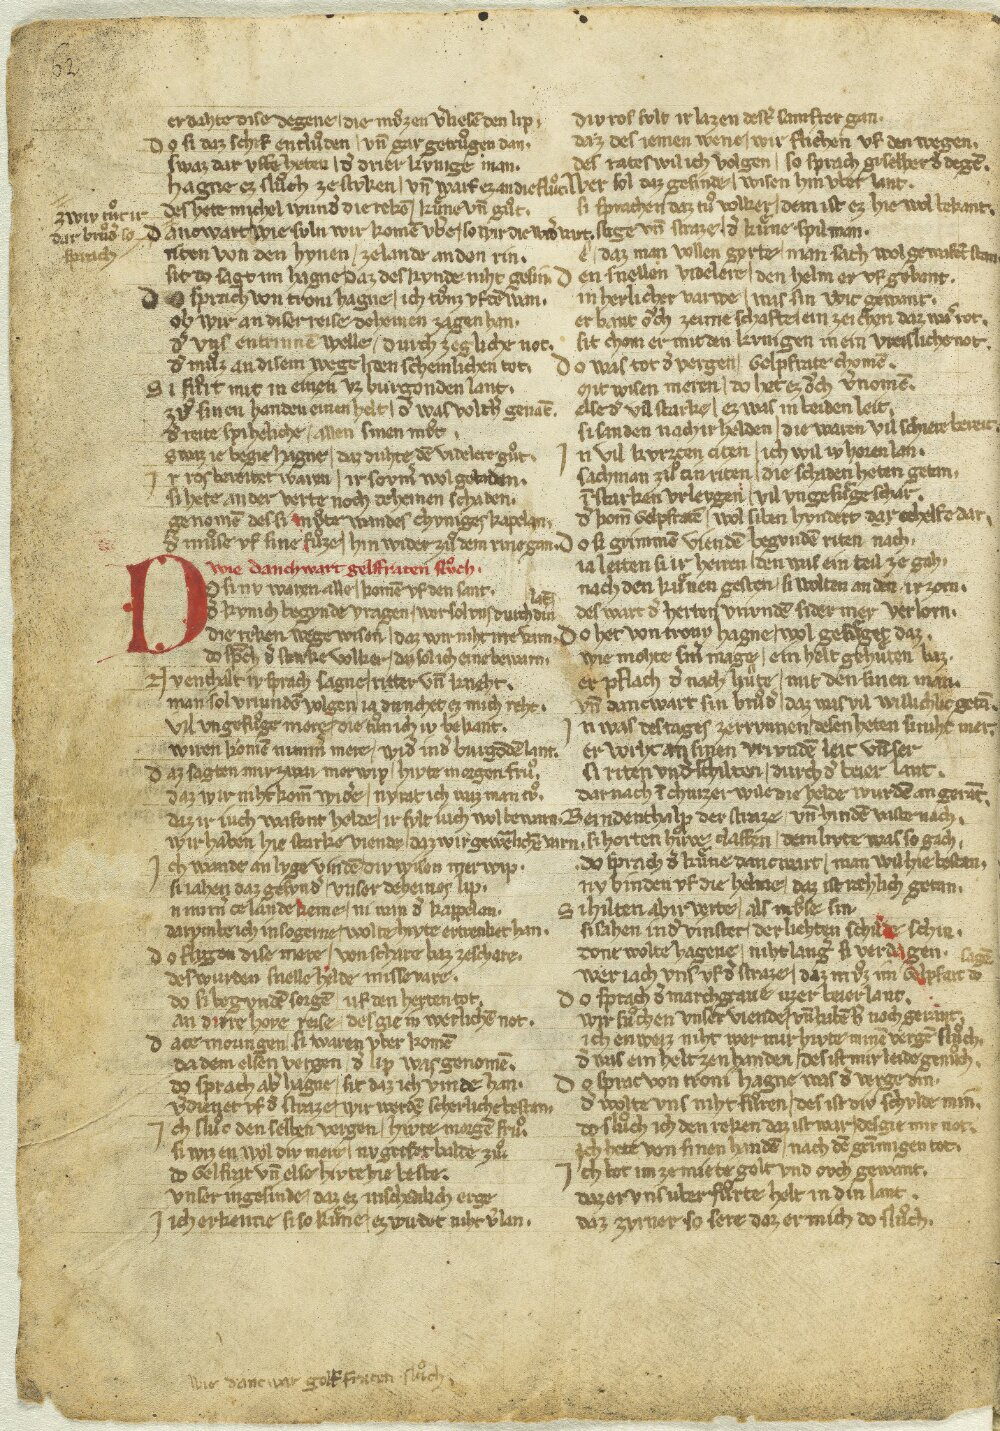 62
er dahte dise degene / die mvͦzen v̾liesē den lip ·
Do si daz schif entlvͦden / vn̄ gar getrvͦgen dan ·
swaz dar vffe heten / d̾ drier kvnige man ·
hagne ez slvͦch ze stvken / vn̄ warf ez an die flvͦt
des hete michel wund̾ die reken / kvͤne vn̄ gvͦt ·
zwiv tvͦt ir
dar brvͦd̾ so
sprach
Dancwart wie svln wir komē vb̾e / so wir die
riten von den hvnen / ze lande an den rin ·
sit do sagt im hagne daz des kvnde niht gesin
Do sprach von troni hagne / ich tvͦnz vf dē wan ·
ob wir an diser reise deheinen zagen han ·
d̾ vns entrinnē welle / durch zegliche not ·
d̾ mvͦz an disem wege / den schemlichen tot ·
Si fvͦrt mit in einen vz burgonden lant ·
zvͦ sinen handen einen helt / d̾ was volkh̾ genāt ·
d̾ reite spehliche / allen sinen mvͦt ·
swaz ie begie hagne / daz duhte dē videlere gvͦt ·
Ir ros bereitet waren / ir sovm̾ wol geladen ·
si hete an der verte noch deheinen schaden ·
genomē des si mvͦte wan des chvniges kapelan ·
d̾ mvͦse vf sine fvͦze / hin wider zvͦ dem rine gan ·
wie danchwart gelffraten slvͦch ·
Do si nv waren alle / komē vf den sant ·
d̾ kvnich begvnde vragen / wer sol vns durch diu lāt
die reken wege wisen / daz wir niht irre varn ·
do sp̾ch d̾ starke volker / daz sol ich eine bewarn ·
Nv enthalt iv sprach hagne / ritter vn̄ kneht ·
man sol vriundē volgen ia dunchet ez mich reht ·
vil vngefvͦge mere / die tvͦn ich iv bekant ·
wiren komē nimm mere / wid̾ in d̾ burgōdē lant ·
Daz sagten mir zwai merwip / hivte morgen frvͦ ·
daz wir niht komē wid̾e / nv rat ich waz man tvͦ ·
daz ir iuch wafent helde / ir svlt iuch wol bewarn ·
wir haben hie starke viende / daz wir gewerlichē varn ·
Ich wande an lvge vindē div wisen merwip ·
si iahen daz gesvnd̾ vnser deheines lip ·
nimm̾ ce lande keme / ni wan d̾ kappelan ·
darvmbe ich in so gerne / wolte hivte ertrenket han ·
Do flvgen dise mere / von schare baz ze schare ·
des wurden snelle helde missevare ·
do si begvndē sorgē / vf den herten tot ·
an dirre hove reise / des gie in werlichē not ·
Dace moringen / si waren vber komē
da dem elsen vergen / d̾ lip was genomē ·
do sprach ab̾ hagne / sit daz ich vinde han ·
v̾dienet vf d̾ straze / wir werdē sicherliche bestan ·
Ich slvͦc den selben vergen / hivte morgē frvͦ ·
si wizen wol div mere / nv grifet balde zvͦ
do Gelfrat vn̄ else hivte hie beste ·
vnser ingesinde / daz ez in schedlich erge
Iich erkenne si so kvͤne / ez wirdet niht v̾lan ·
div ros svlt ir lazen dest̾ sanfter gan ·
daz des iemen wene / wir fliehen vf den wegen ·
des rates wil ich volgen / so sprach giselher d̾ degē ·
Wer sol daz gesinde / wisen hin vber lant ·
si sprachen daz tvͦ volker / dem ist ez hie wol bekant ·
stige vn̄ straze / d̾ kvͤne spilman ·
e daz man vollen gerte / man sach wol gewafēt stan
Den snellen videlere / den helm er vf gebant ·
in herlicher varwe / was sin wic gewant ·
er bant ovͨch zeime schafte / ein zeichen daz was rot ·
sit chom er mit den kvnigen in ein vreisliche not ·
Do was tot d̾ vergen / Gelpfrate chomē ·
mit wisen meren / do het ez ovͨch v̾nomē ·
else d̾ vil starke / ez was in beiden leit ·
si sanden nach ir helden / die waren vil schiere bereit ·
In vil kvrzcen citen / ich wil iv horen lan ·
sach man zvͦ ein riten / die schaden heten getan ·
in̄ starken vrlevgen / vil vngefvͤge schar ·
d̾ kom̄ Gelpfratē / wol siben hvndert dar ce helfe dar ·
Do si grimmē viendē begvndē riten nach ·
ia leiten si ir herren / den was ein teil ze gah ·
nach den kvͤnen gesten / si wolten an den ir zorn ·
des wart d̾ herren vriundē sider mer verlorn ·
Do het von trony hagne / wol gefvͤget daz ·
wie mohte sin̄ mage / ein helt gehvͤten baz ·
er pflach d̾ nach hvͦte / mit den sinen man ·
vn̄ dancwart sin brvͦd̾ / daz was vil willichlic getā ·
In was des tages zerrvnnen / des en heten si niht mer ·
er vorht an sinen vrivndē leit vn̄ ser
si riten vnd̾ schilten / durch d̾ beier lant ·
dar nach in̄ churzer wile die helde wurdē an gerāt ·
Beidenthalp der straze / vn̄ hindē vaste nach ·
si horten hvͤve claffen / dem livte was so gach ·
do sprach d̾ kvͤne dancwart / man wil hie bestan ·
nv binden vf die helme / daz ist rehlich getan ·
Si hilten abir verte / als mvͦse sin
si sahen in d̾ vinster / der liehten schilde schin ·
done wolte hagene / niht lang̾ si verdagen · sagē
wer iach vns vf d̾ straze / daz mvͦz im Gelpfart do
Do sprach d̾ marchgrave vzer beier lant ·
wir svͦchen vnser viende / vn̄ haben h̾ noch gerant ·
ich en weiz niht wer mir hivte minē vergē slvͦch ·
d̾ was ein helt zen handen / des ist mir leide genvͦch ·
Do sprac von troni hagne was d̾ verge din ·
d̾ wolte vns niht fvͤren / des ist div schvlde min ·
do slvͦch ich den reken daz ist war / des gie mir not ·
ich hete von sinen handē / nach dē grimigen tot ·
Ich bot im ze miete golt vnd ovch gewant ·
daz er vns vber fvͦrte helt in din lant ·
daz zvrner so sere daz er mich do slvͦch ·
wie dancwar golffraten slvͦch ·